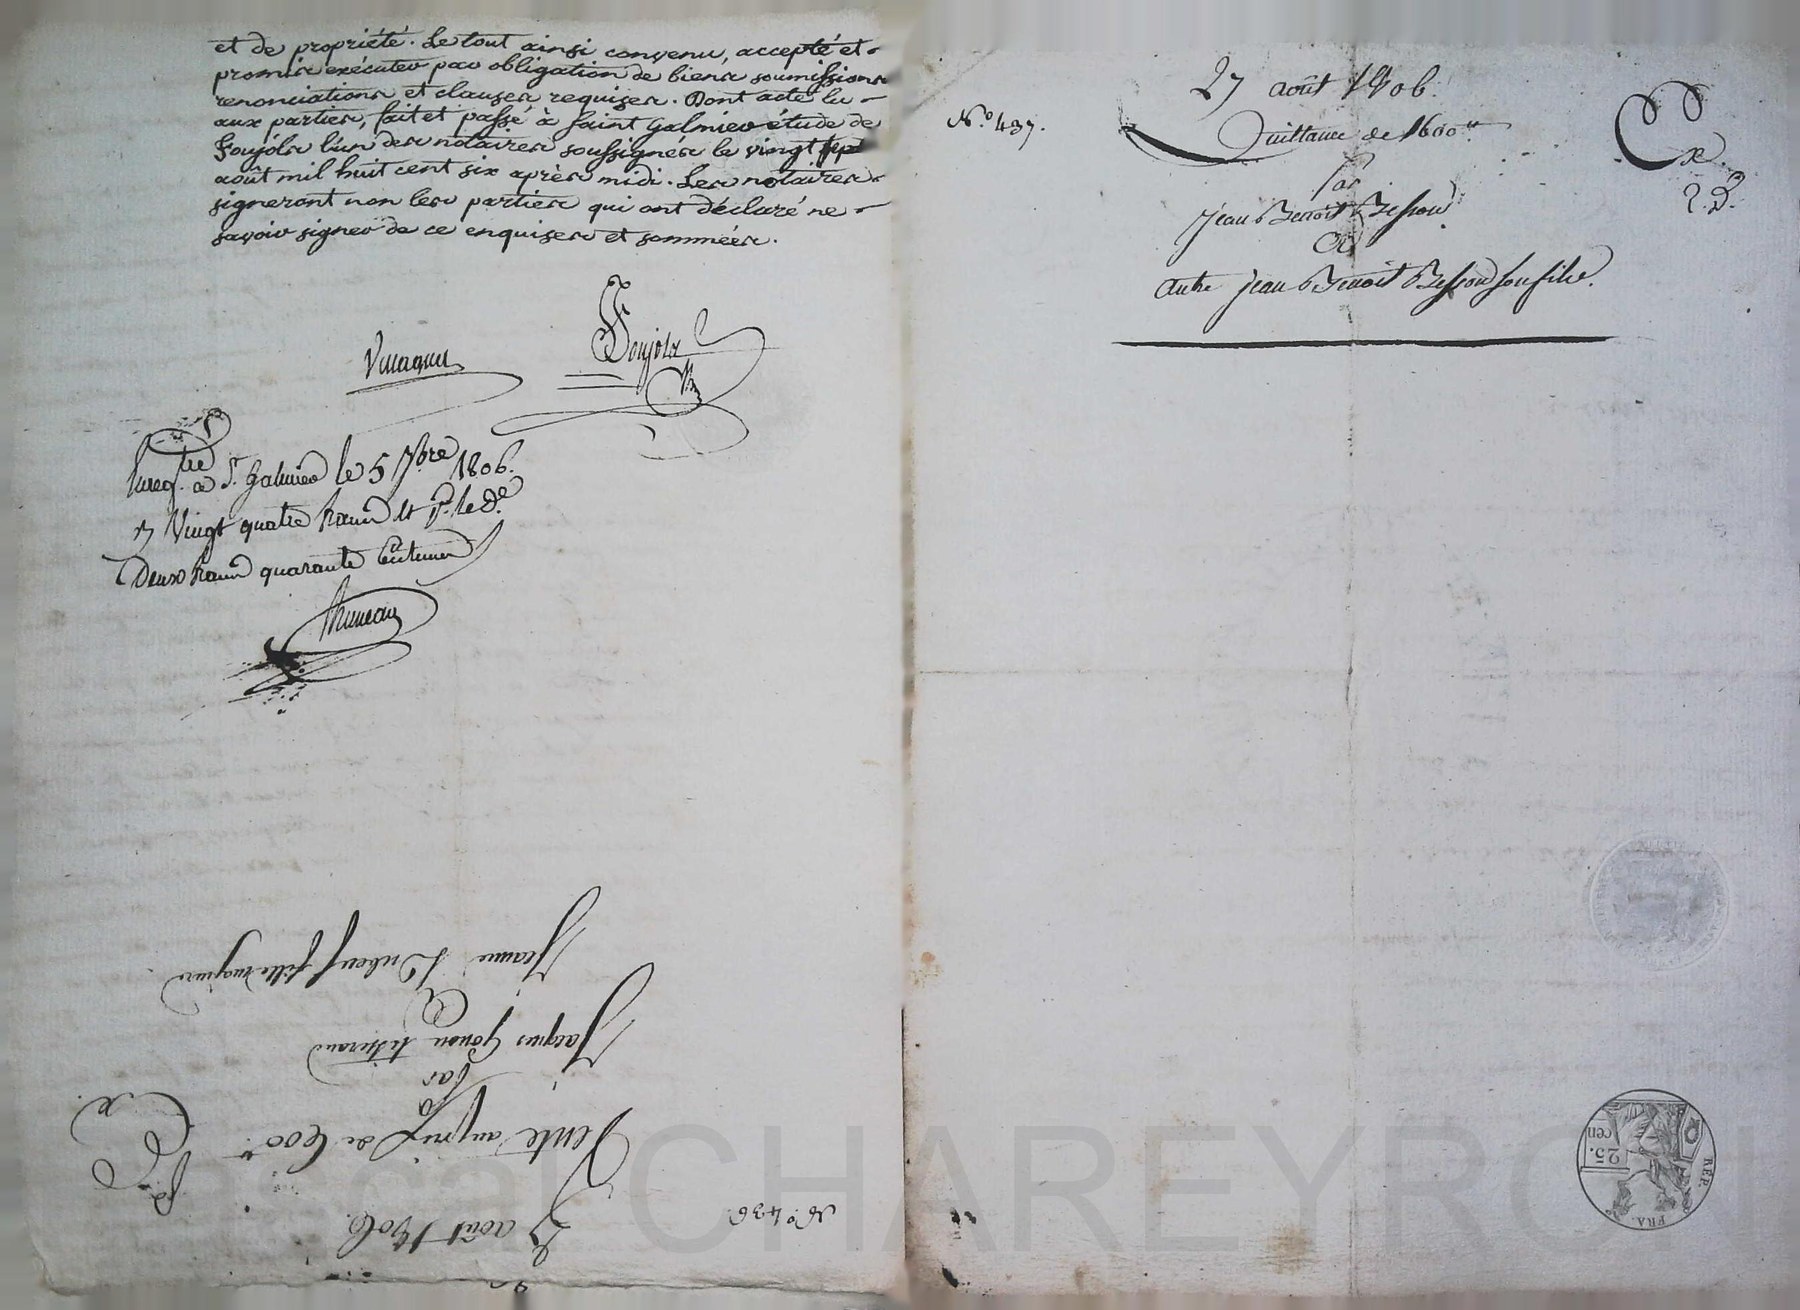 et de propriété. Le tout ainsi convenu, accepté et
promis exécuter par obligation de biens soumissions
renonciations et clauses requises. Dont acte lu
aux parties, fait et passé à Saint Galmier étude de
Foujols l'un des notaires soussignés le vingt sept
août mil huit cent six après midi. Les notaires
signeront non les parties qui ont déclaré ne
savoir signer de ce enquises et sommées.
Foujols
à St. Galmier le 5 7bre 1806.
Vingt quatre francs et pr. le de.
Deux francs quarante Centimes
N.º 436.
août 1806.
Vente au prix de 600
à
Par
Jacques Gonon tisserand
à
Jeanne Duboeuf fille majeure
Ex.
N.º 437.
27 août 1806.
Quittance de 1600tt
Par
Jean Benoit Besson
à
Autre Jean Benoit Besson son fils.
Ex.
2.D.
25.
cen
REP.
FRA.
Pascal CHAREYRON